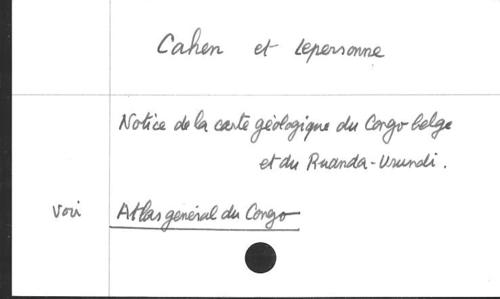 Cahen et Lepersonne
Notice de la carte géologique du Congo belge
et du Ruanda-Urundi.
Voir Atlas général du Congo